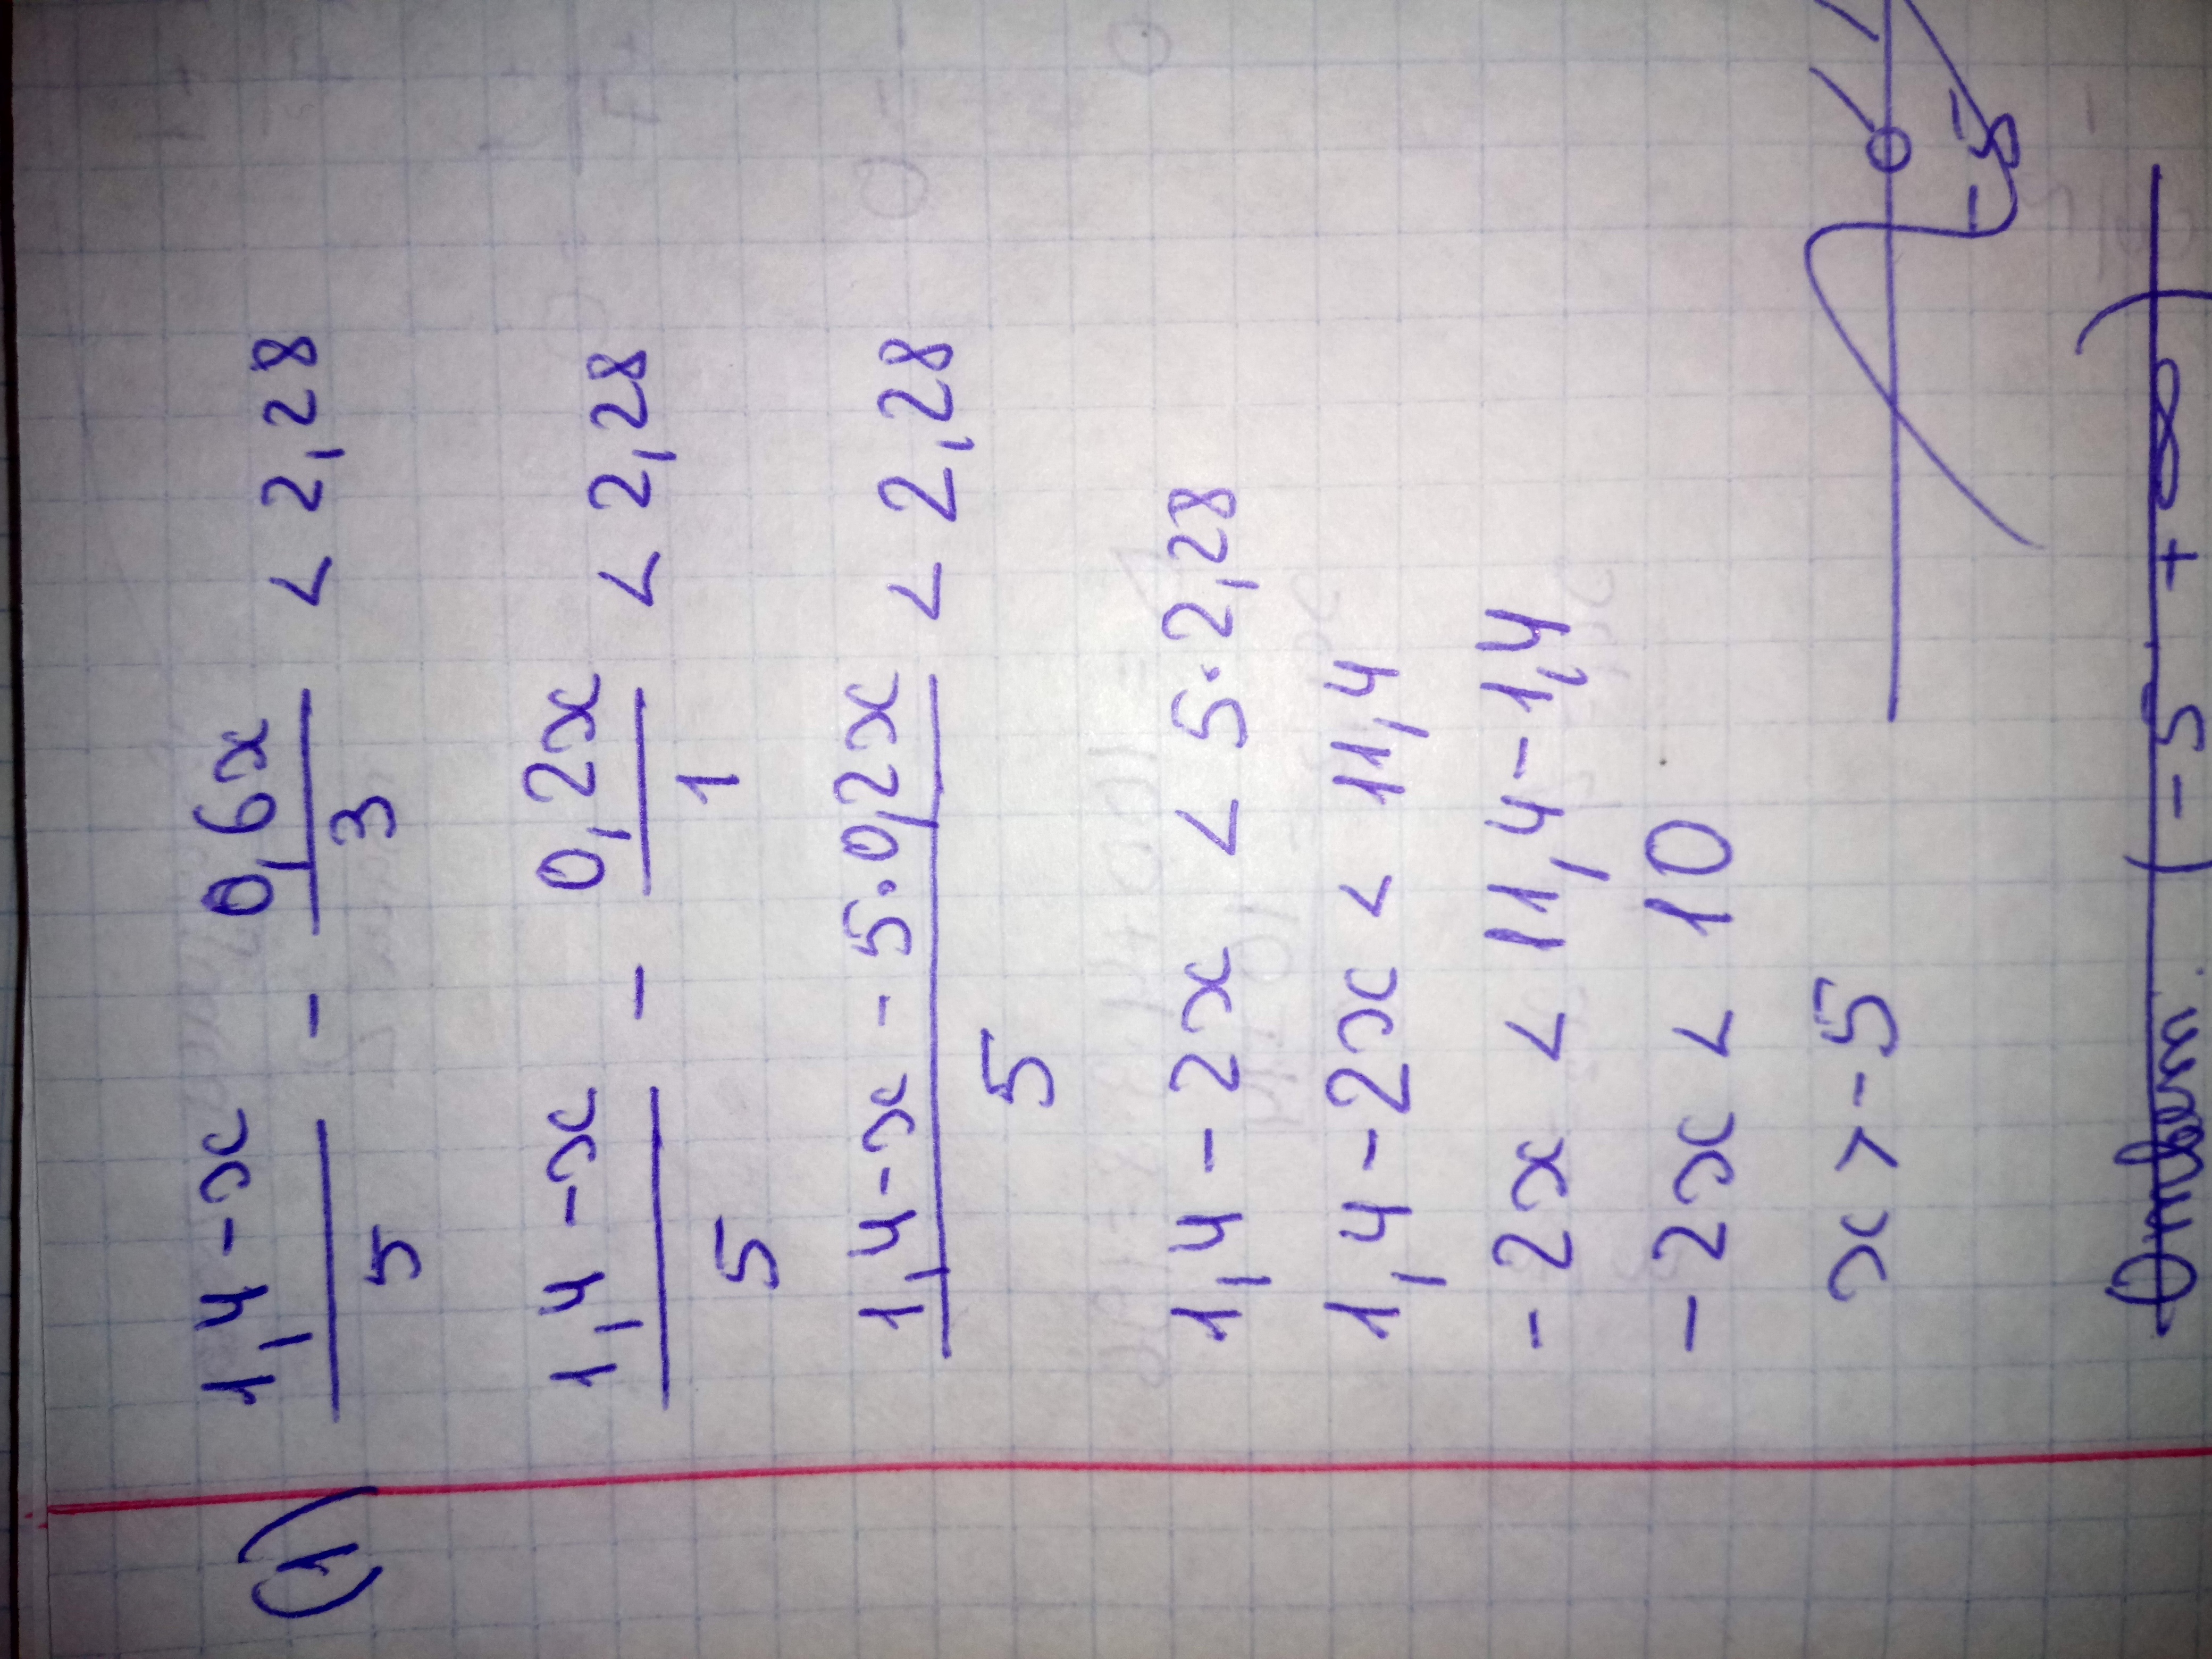 (1) (1,4-x)/5 - 0,6x/3 < 2,28
(1,4-x)/5 - 0,2x/1 < 2,28
(1,4-x - 5·0,2x)/5 < 2,28
1,4 - 2x < 5·2,28
1,4 - 2x < 11,4
- 2x < 11,4 - 1,4
- 2x < 10
x > -5
-5
Ответ. (-5 +∞)